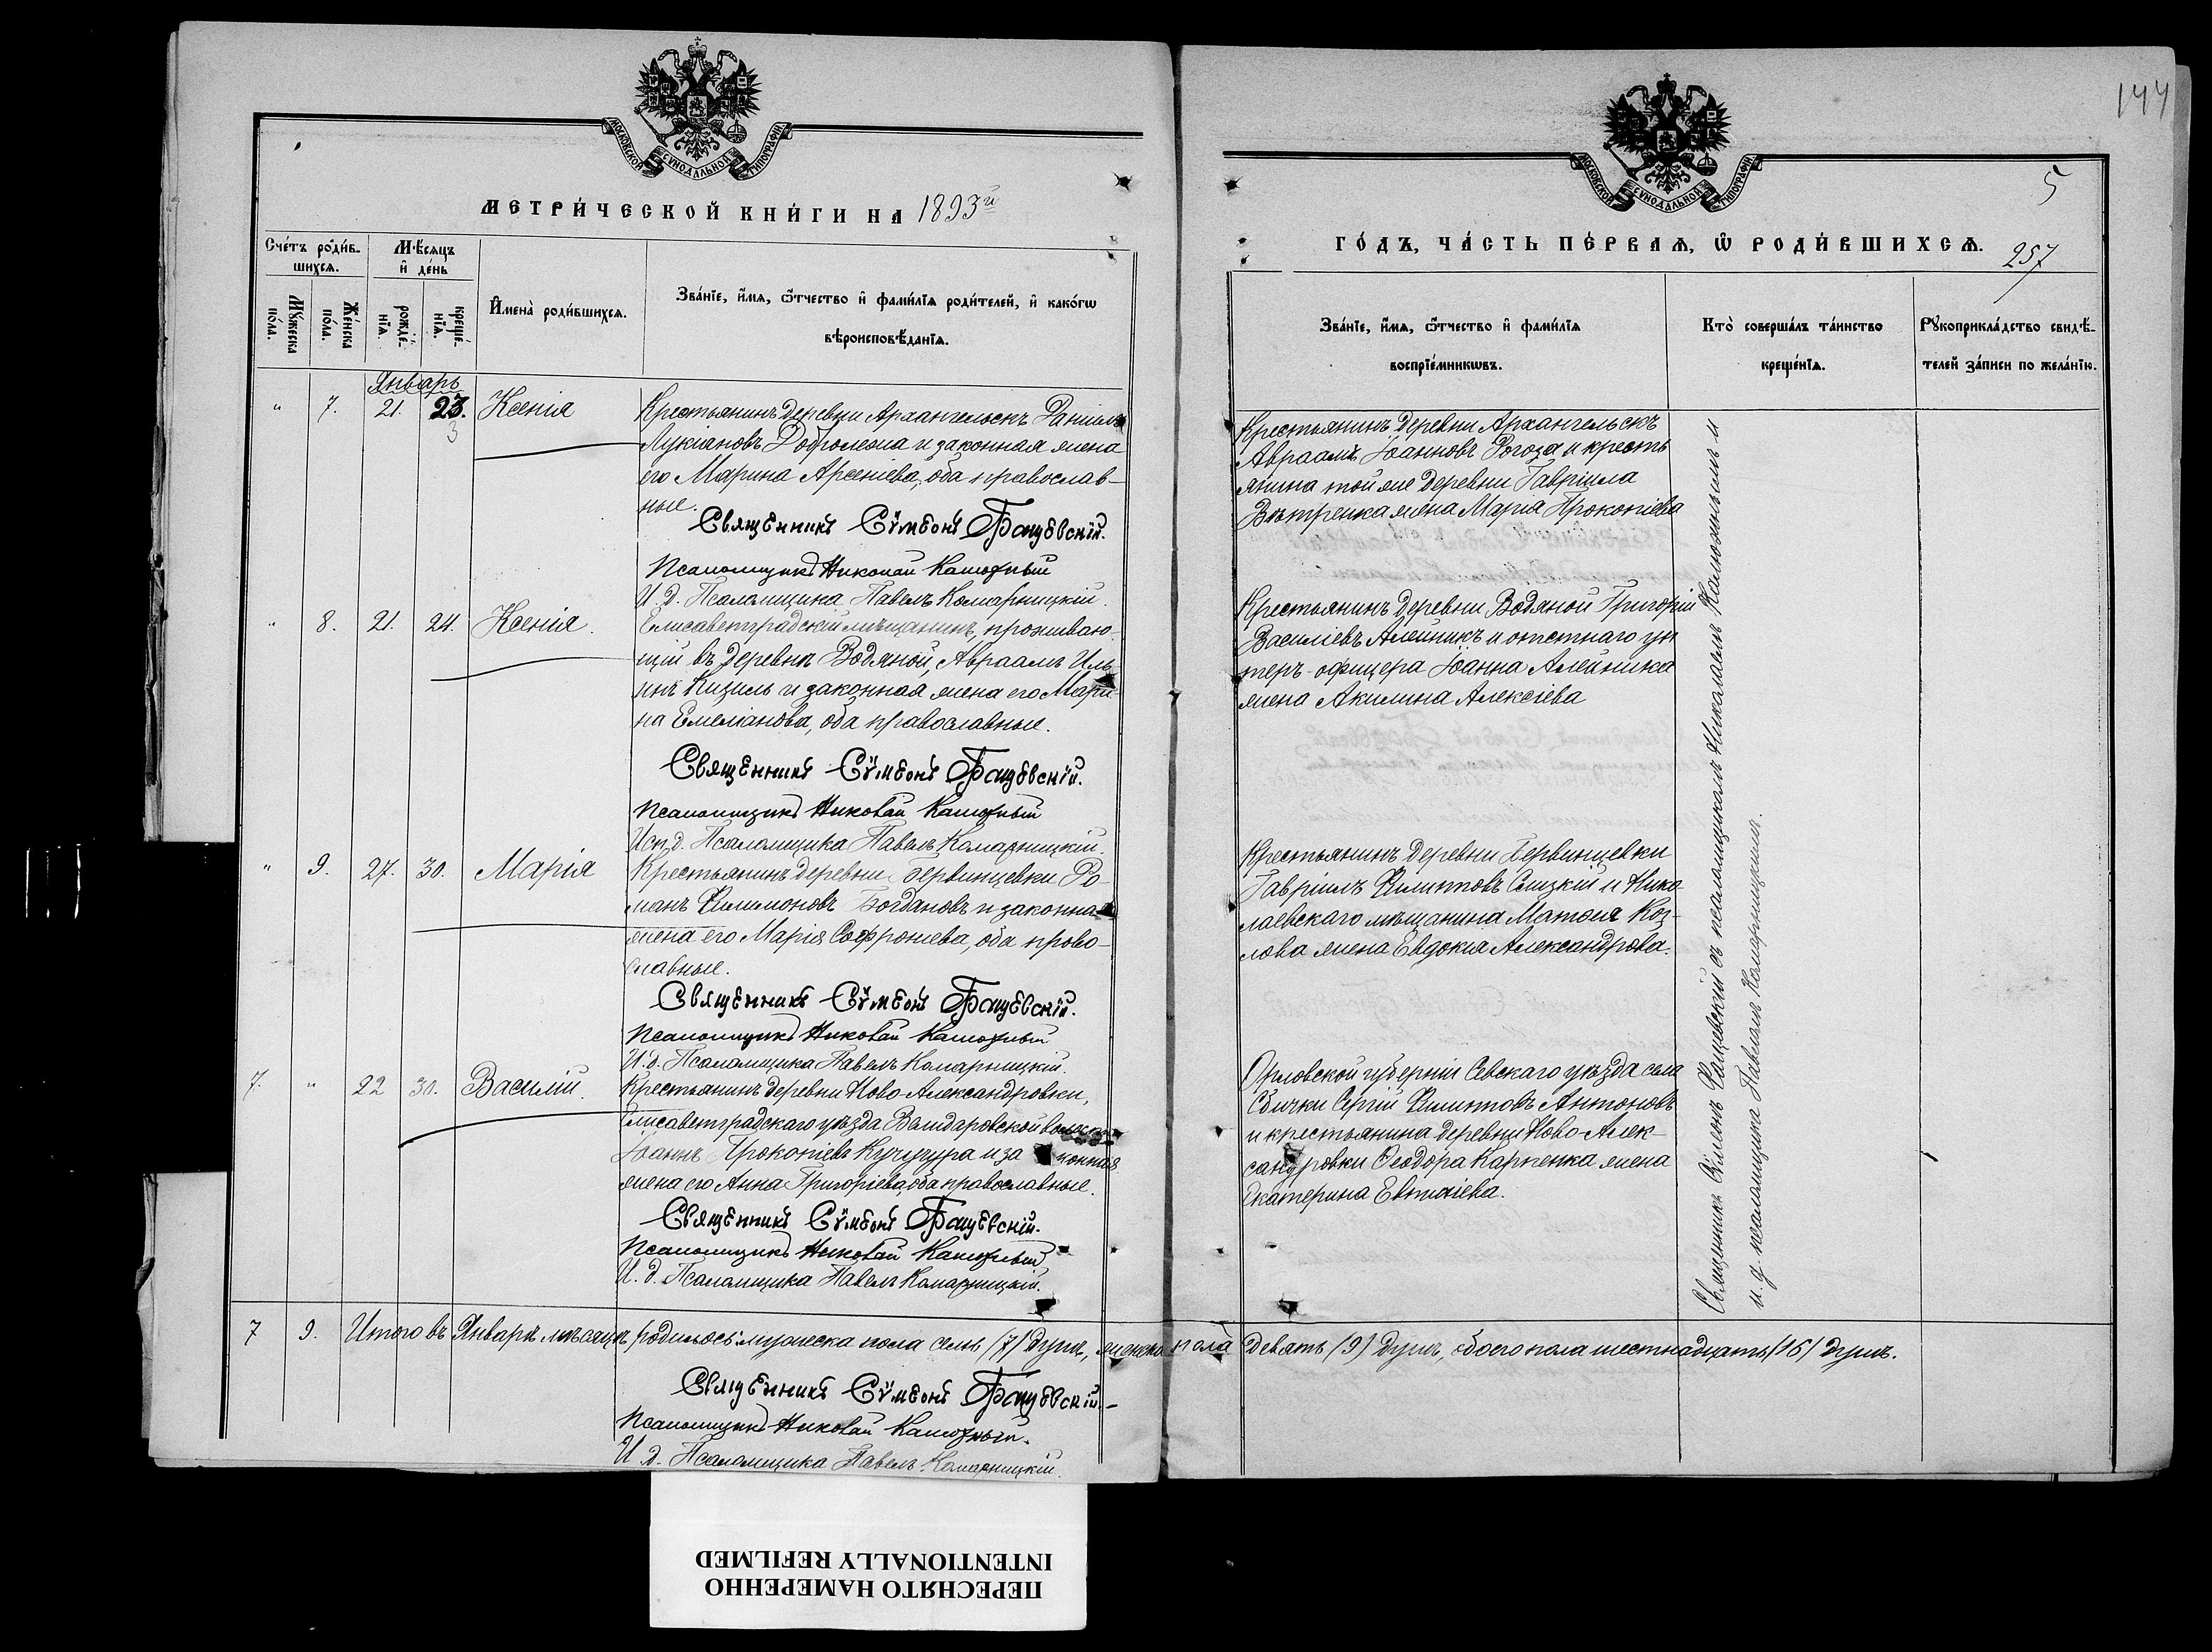 МОСКОВСКОЙ СѴНОДАЛЬНОЙ ТИПОГРАФІИ
МЕТРИ́ЧЕСКОЙ КНИ́ГИ НА 1893й
Сче́тъ роди́в-
шихся.
Мѣ́сяцъ
и҆ де́нь
Мꙋ́жеска по́ла.
Же́нска по́ла.
рожде́-
нїѧ.
креще́-
нїѧ.
И҆мена̀ роди́вшихсѧ.
Зва́нїе, и҆́мѧ, ѻ҆́тчество и҆ фами́лїѧ роди́телей, и҆ како́гѡ
вѣроисповѣ́данїѧ.
Январь
" 7. 21. 23. Ксенія
3
Крестьянинъ деревни Архангельскъ Даніилъ
Лукіановъ Доброlежа и законная жена
его Марина Арсеніева, оба православ-
ные.
Священникъ Сѷмеонъ Бащевскій.
Псаломщикъ Николай Калюжный
И. д. Псаломщика Павелъ Комарницкій.
" 8. 21. 24. Ксенія.
Елисаветградскій мѣщанинъ, проживаю-
щій въ деревнѣ Водяной, Авраамъ Иль-
инъ Кизиль и законная жена его Мари-
на Емеліанова, оба православные.
Священникъ Сѷмеонъ Бащевскій.
Псаломщикъ Николай Калюжный
Исп. д. Псаломщика Павелъ Комарницкій.
" 9. 27. 30. Марія
Крестьянинъ деревни Бервинцевки Ро-
манъ Филимоновъ Богдановъ и законная
жена его Марія Софроніева, оба право-
славные.
Священникъ Сѷмеонъ Бащевскій.
Псаломщикъ Николай Калюжный
И. д. Псаломщика Павелъ Комарницкій.
7. " 22 30. Василій.
Крестьянинъ деревни Ново-Александровки,
Елисаветградскаго уѣзда
Іоаннъ Прокопіевъ Кучугура и законная
жена его Анна Григоріева, оба православные.
Священникъ Сѷмеонъ Бащевскій.
Псаломщикъ Николай Калюжный
И. д. Псаломщика Павелъ Комарницкій.
7 9. Итого въ Январѣ мѣсяцѣ родилось: мужеска пола семь (7) душъ, женска пола девять (9) душъ, обоего пола шестнадцать (16) душъ.
Священникъ Сѷмеонъ Бащевскій.
Псаломщикъ Николай Калюжный.
И. д. Псаломщика Павелъ Комарницкій.
144
5
МОСКОВСКОЙ СѴНОДАЛЬНОЙ ТИПОГРАФІИ
ГО́ДЪ, ЧА́СТЬ ПЕ́РВАѦ, Ѽ РОДИ́ВШИХСѦ.
257
Зва́нїе, и҆́мѧ, ѻ҆́тчество и҆ фами́лїѧ
воспрїе́мникѡвъ.
Кто̀ соверша́лъ та́инство
креще́нїѧ.
Рꙋкоприкла́дство свидѣ́-
телей за́писи по жела́нїю.
Крестьянинъ деревни Архангельскъ
Авраамъ Іоанновъ Рогоза и кресть
янина той же деревни Гавріила
Вѣтренка жена Марія Прокопіева
Крестьянинъ деревни Водяной Григорій
Василіевъ Алейникъ и отстнаго ун
теръ-офицера Іоанна Алейника
жена Акилина Алексіева
Крестьянинъ деревни Бервинцевки
Гавріилъ Филипповъ и Нико-
лаевскаго мѣщанина Матѳія Коз-
лова жена Евдокія Александрова.
Орловской губерніи Севскаго уѣзда села
Сергій Филипповъ Антоновъ
и крестьянина деревни Ново-Алек-
сандровки Ѳеодора Карпенка жена
Екатерина Евтихіева.
Священникъ Сѷмеонъ Бащевскій съ псаломщикомъ Николаемъ Калюжнымъ и
и. д. псаломщика Павломъ Комарницкимъ.
ПЕРЕСНЯТО НАМЕРЕННО
INTENTIONALLY REFILMED